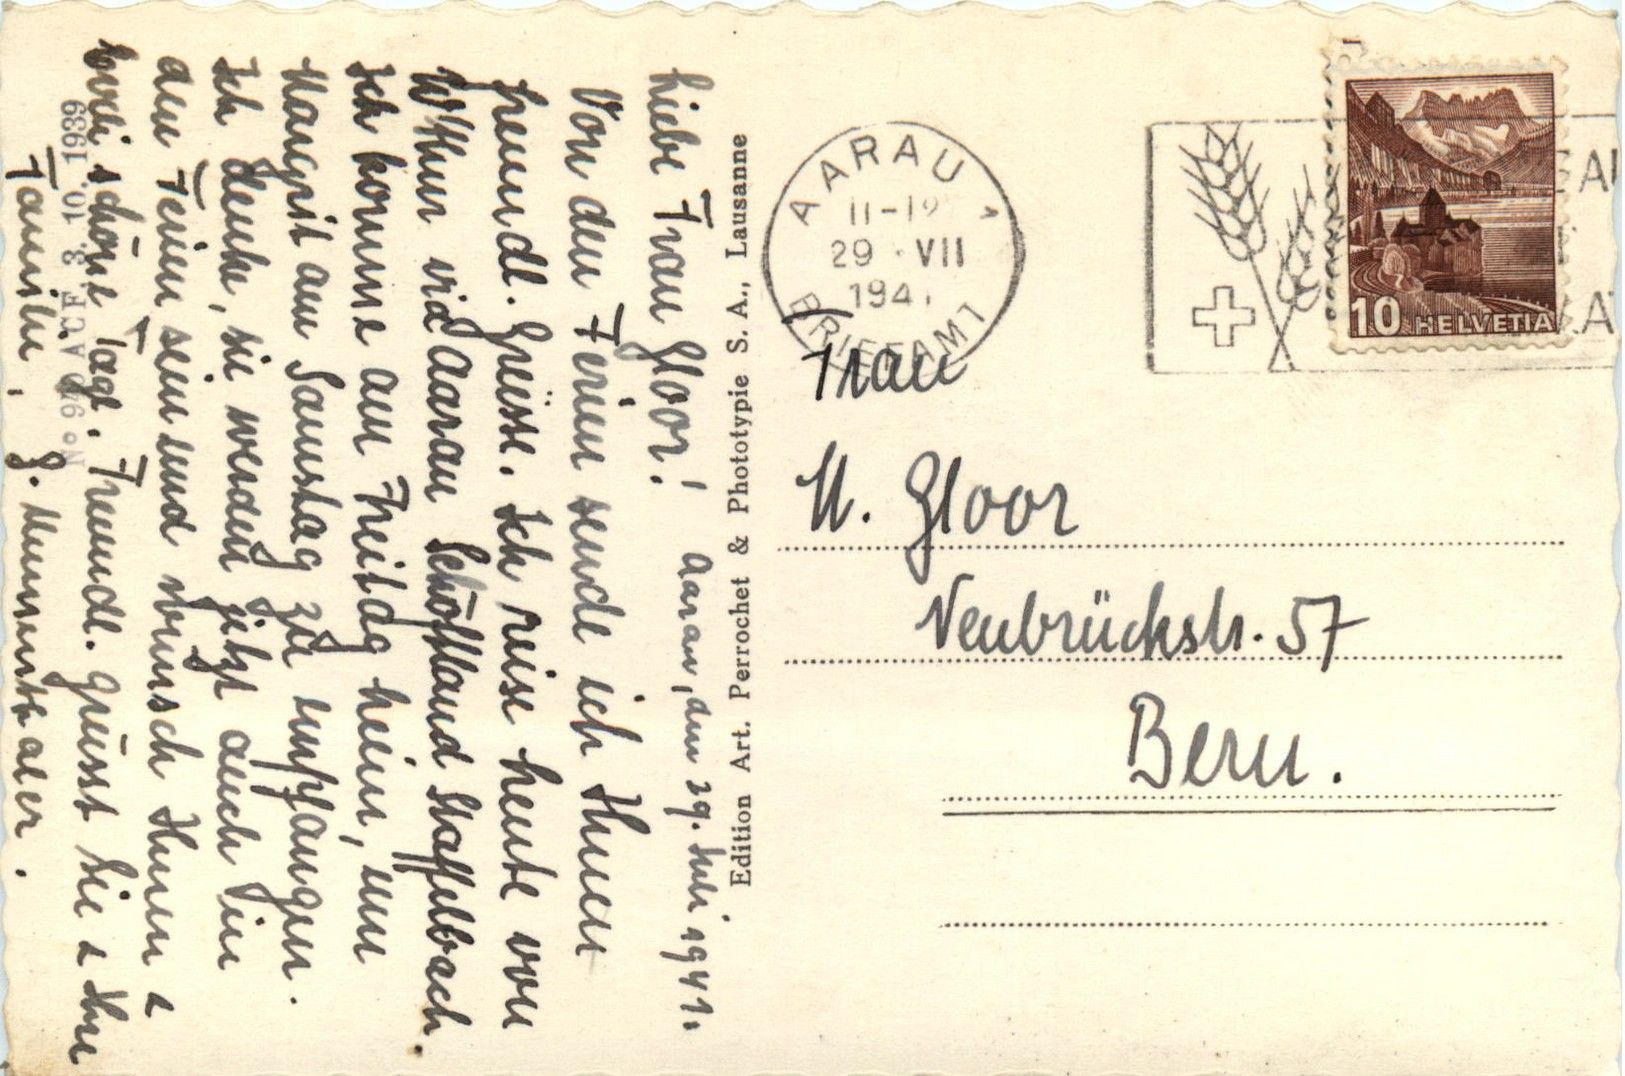 Aarau, den 29. Juli 1941.
Liebe Frau Gloor!
Von den Ferien sende ich Ihnen
freundl. Grüsse. Ich reise heute von
W'thur via Aarau Schöftland Staffelbach.
Ich komme am Freitag heim, um
Margrit am Samstag zu empfangen.
Ich denke, sie werden jetzt auch in
den Ferien sein und wünsch Ihnen
schöne Tage. Freundl. grüsst Sie & Ihre
Familie,
Edition Art. Perrochet & Phototypie S. A., Lausanne
No 946 ACF. 3. 10. 1939
AARAU
11-12
29 · VII
1941
BRIEFAMT
10 HELVETIA
Frau
M. Gloor
Neubrückstr. 57
Bern.